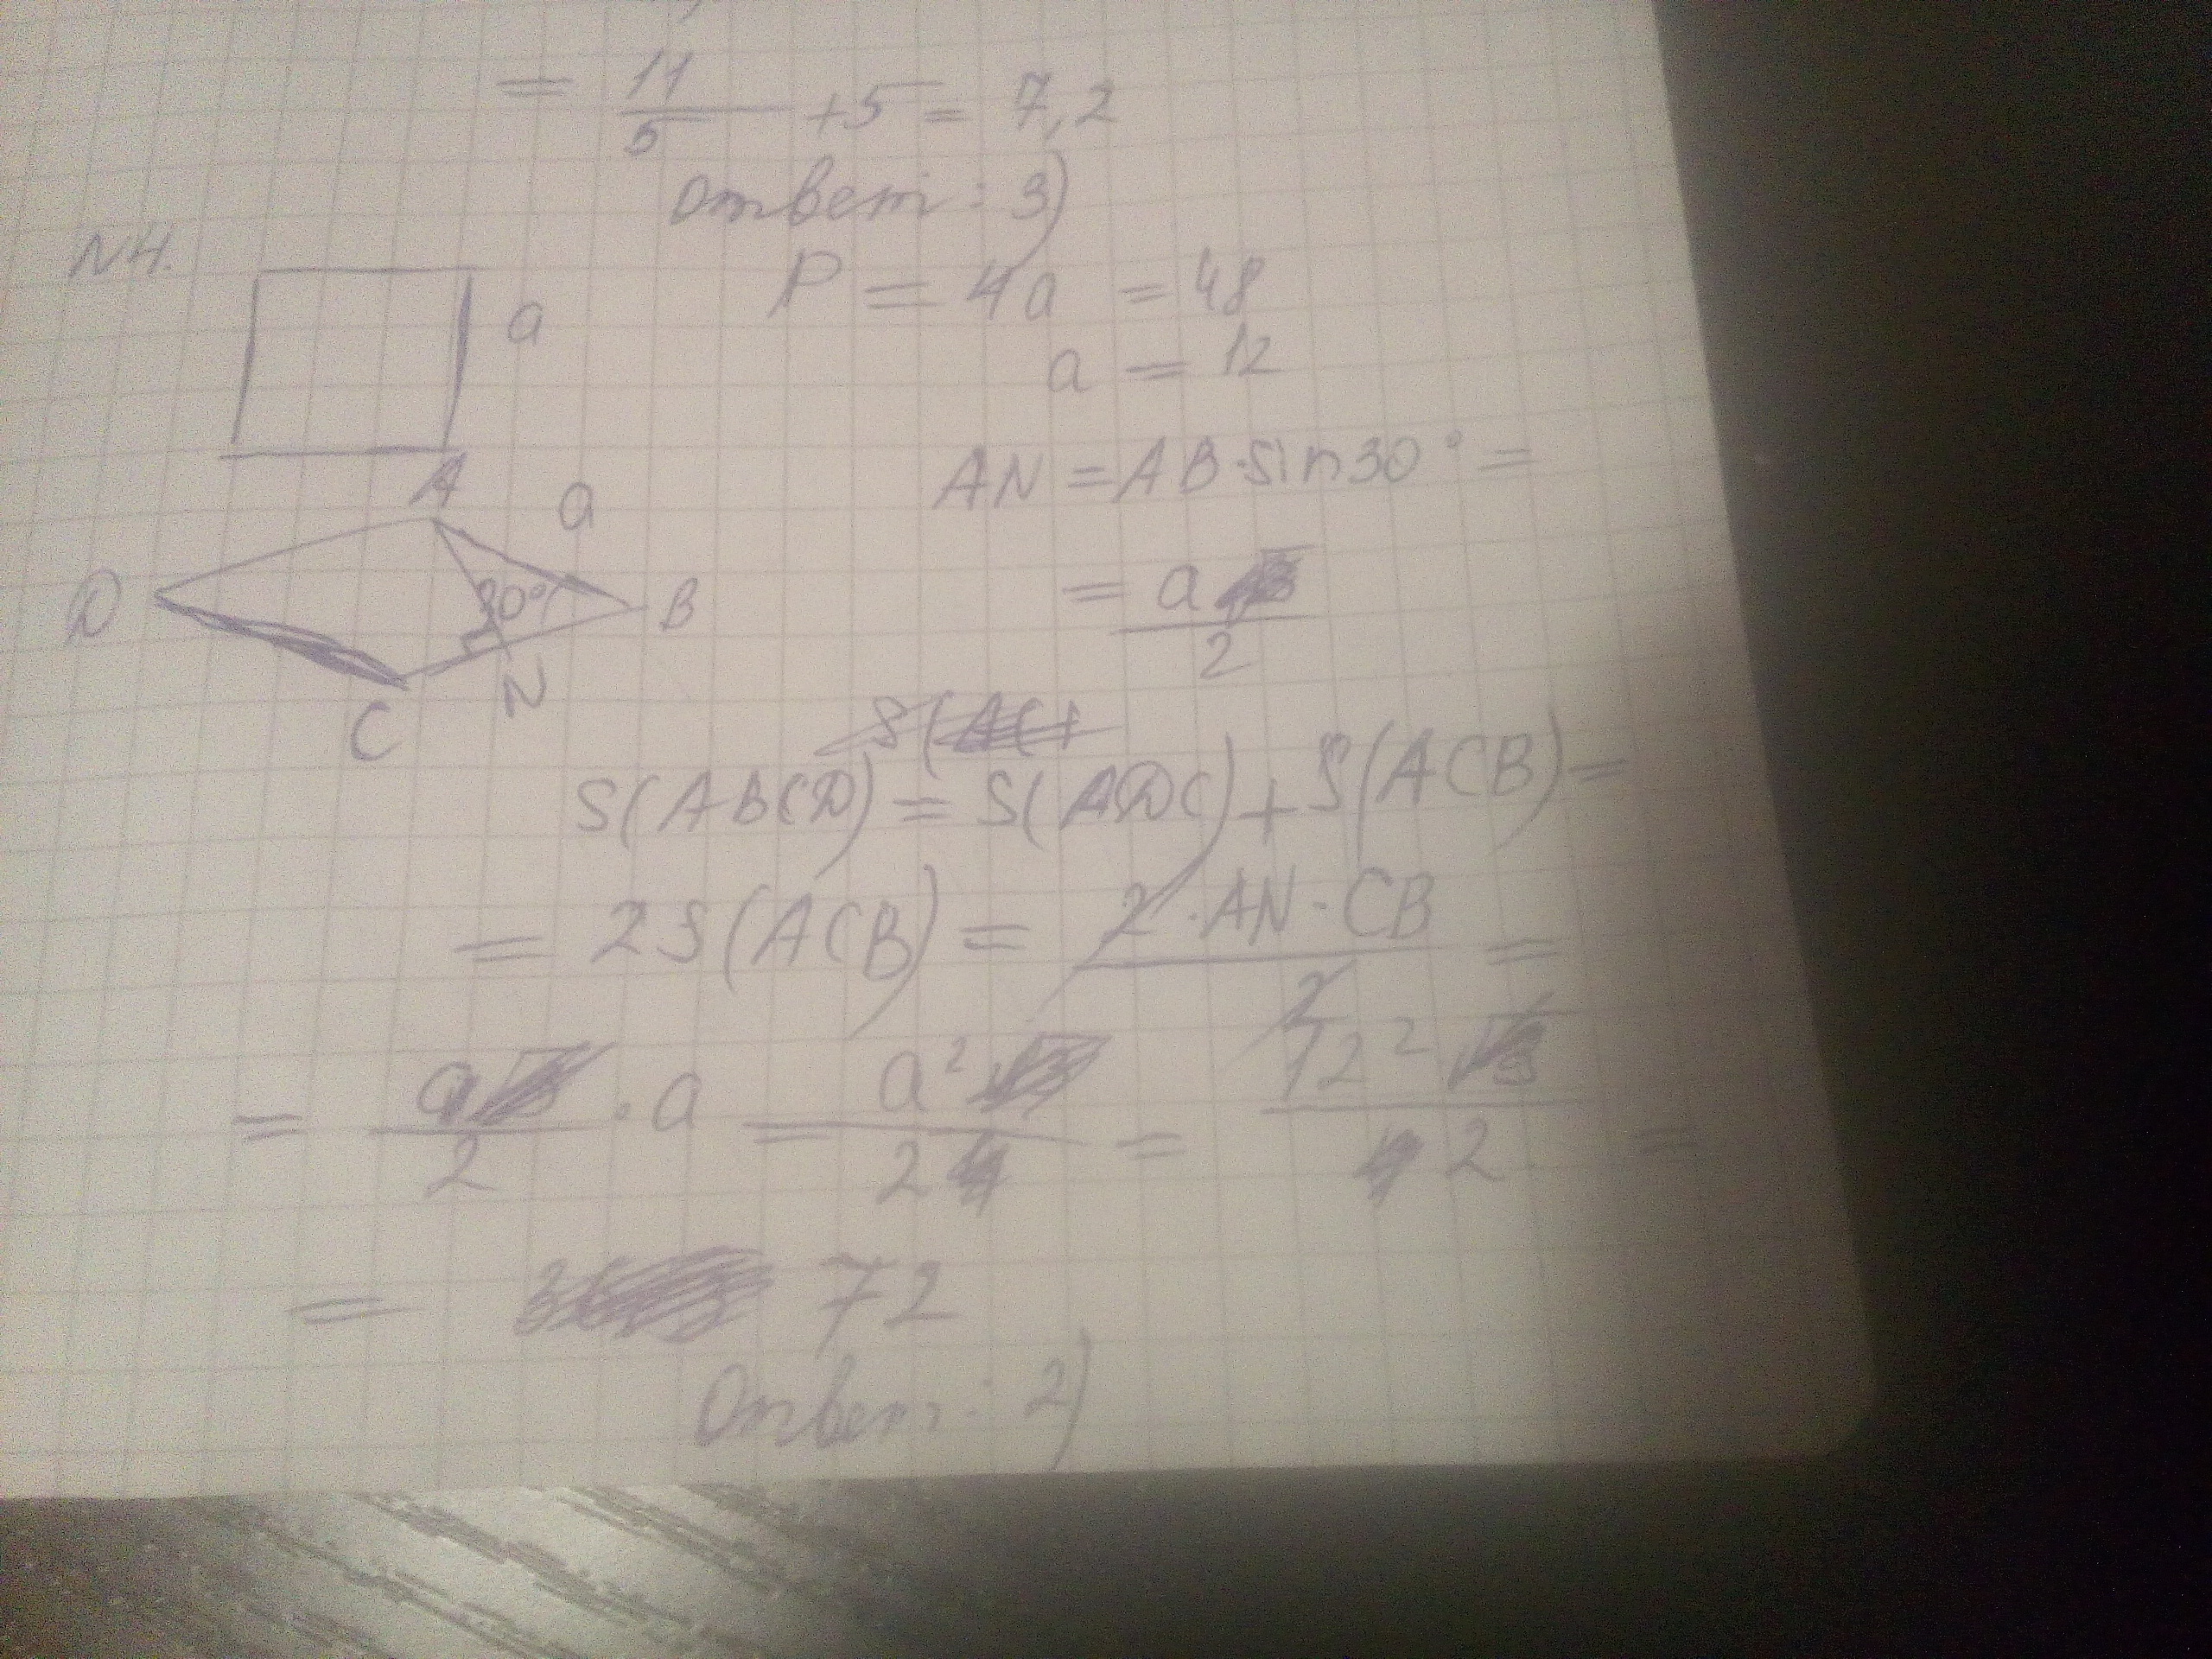 = 11/5 + 5 = 7,2
Ответ: 3)
N4.
a
P = 4a = 48
a = 12
A
a
AN = AB·sin30° =
D
30°
B
= a/2
N
C
S(ABCD) = S(ADC) + S(ACB) =
= 2S(ACB) = 2·AN·CB/2 =
= a/2 · a = a²/2 = 12²/2 =
= 72
Ответ: 2)